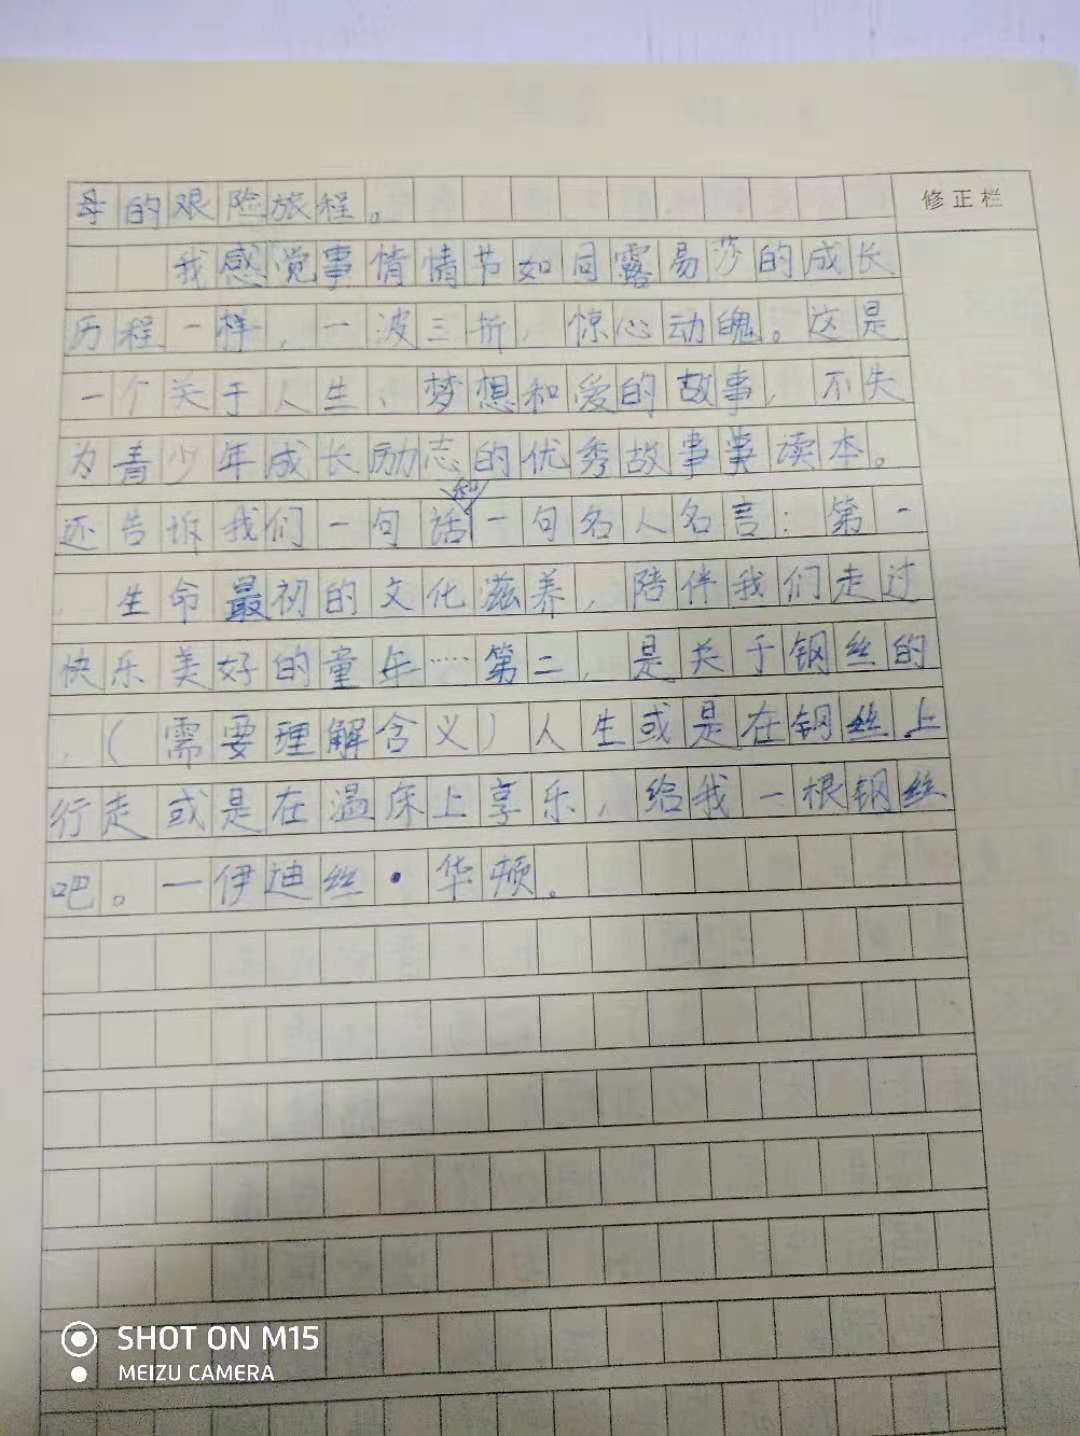 修正栏
母的艰险旅程。
我感觉事情情节如同露易莎的成长
历程一样，一波三折，惊心动魄。这是
一个关于人生、梦想和爱的故事，不失
为青少年成长励志的优秀故事类读本。
还告诉我们一句话和一句名人名言：第一
，生命最初的文化滋养，陪伴我们走过
快乐美好的童年……第二，是关于钢丝的
，（需要理解含义）人生或是在钢丝上
行走或是在温床上享乐，给我一根钢丝
吧。—伊迪丝·华顿。
SHOT ON M15
MEIZU CAMERA